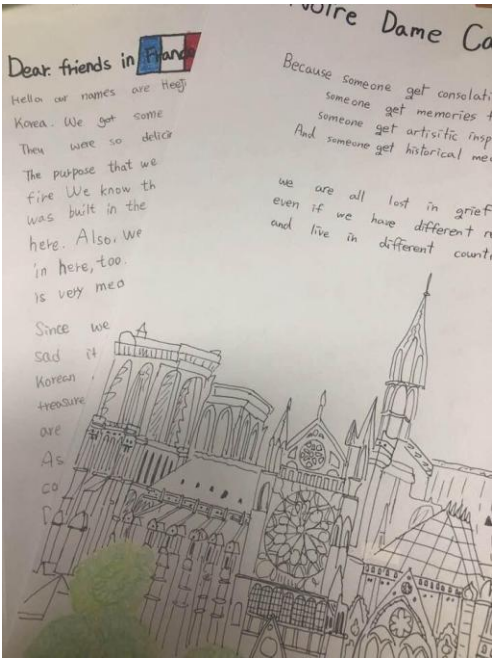 Dear. friends in France
Hello our names are Heeji
Korea. We got some
They were so delicio
The purpose that we
fire We know th
was built in the
here. Also, we
in here, too.
is very mea
Since we
sad it
Korean
treasure
are
As
co
Notre Dame Ca
Because someone get consolati
someone get memories t
someone get artisitic insp
And someone get historical me
we are all lost in grief
even if we have different r
and live in different count